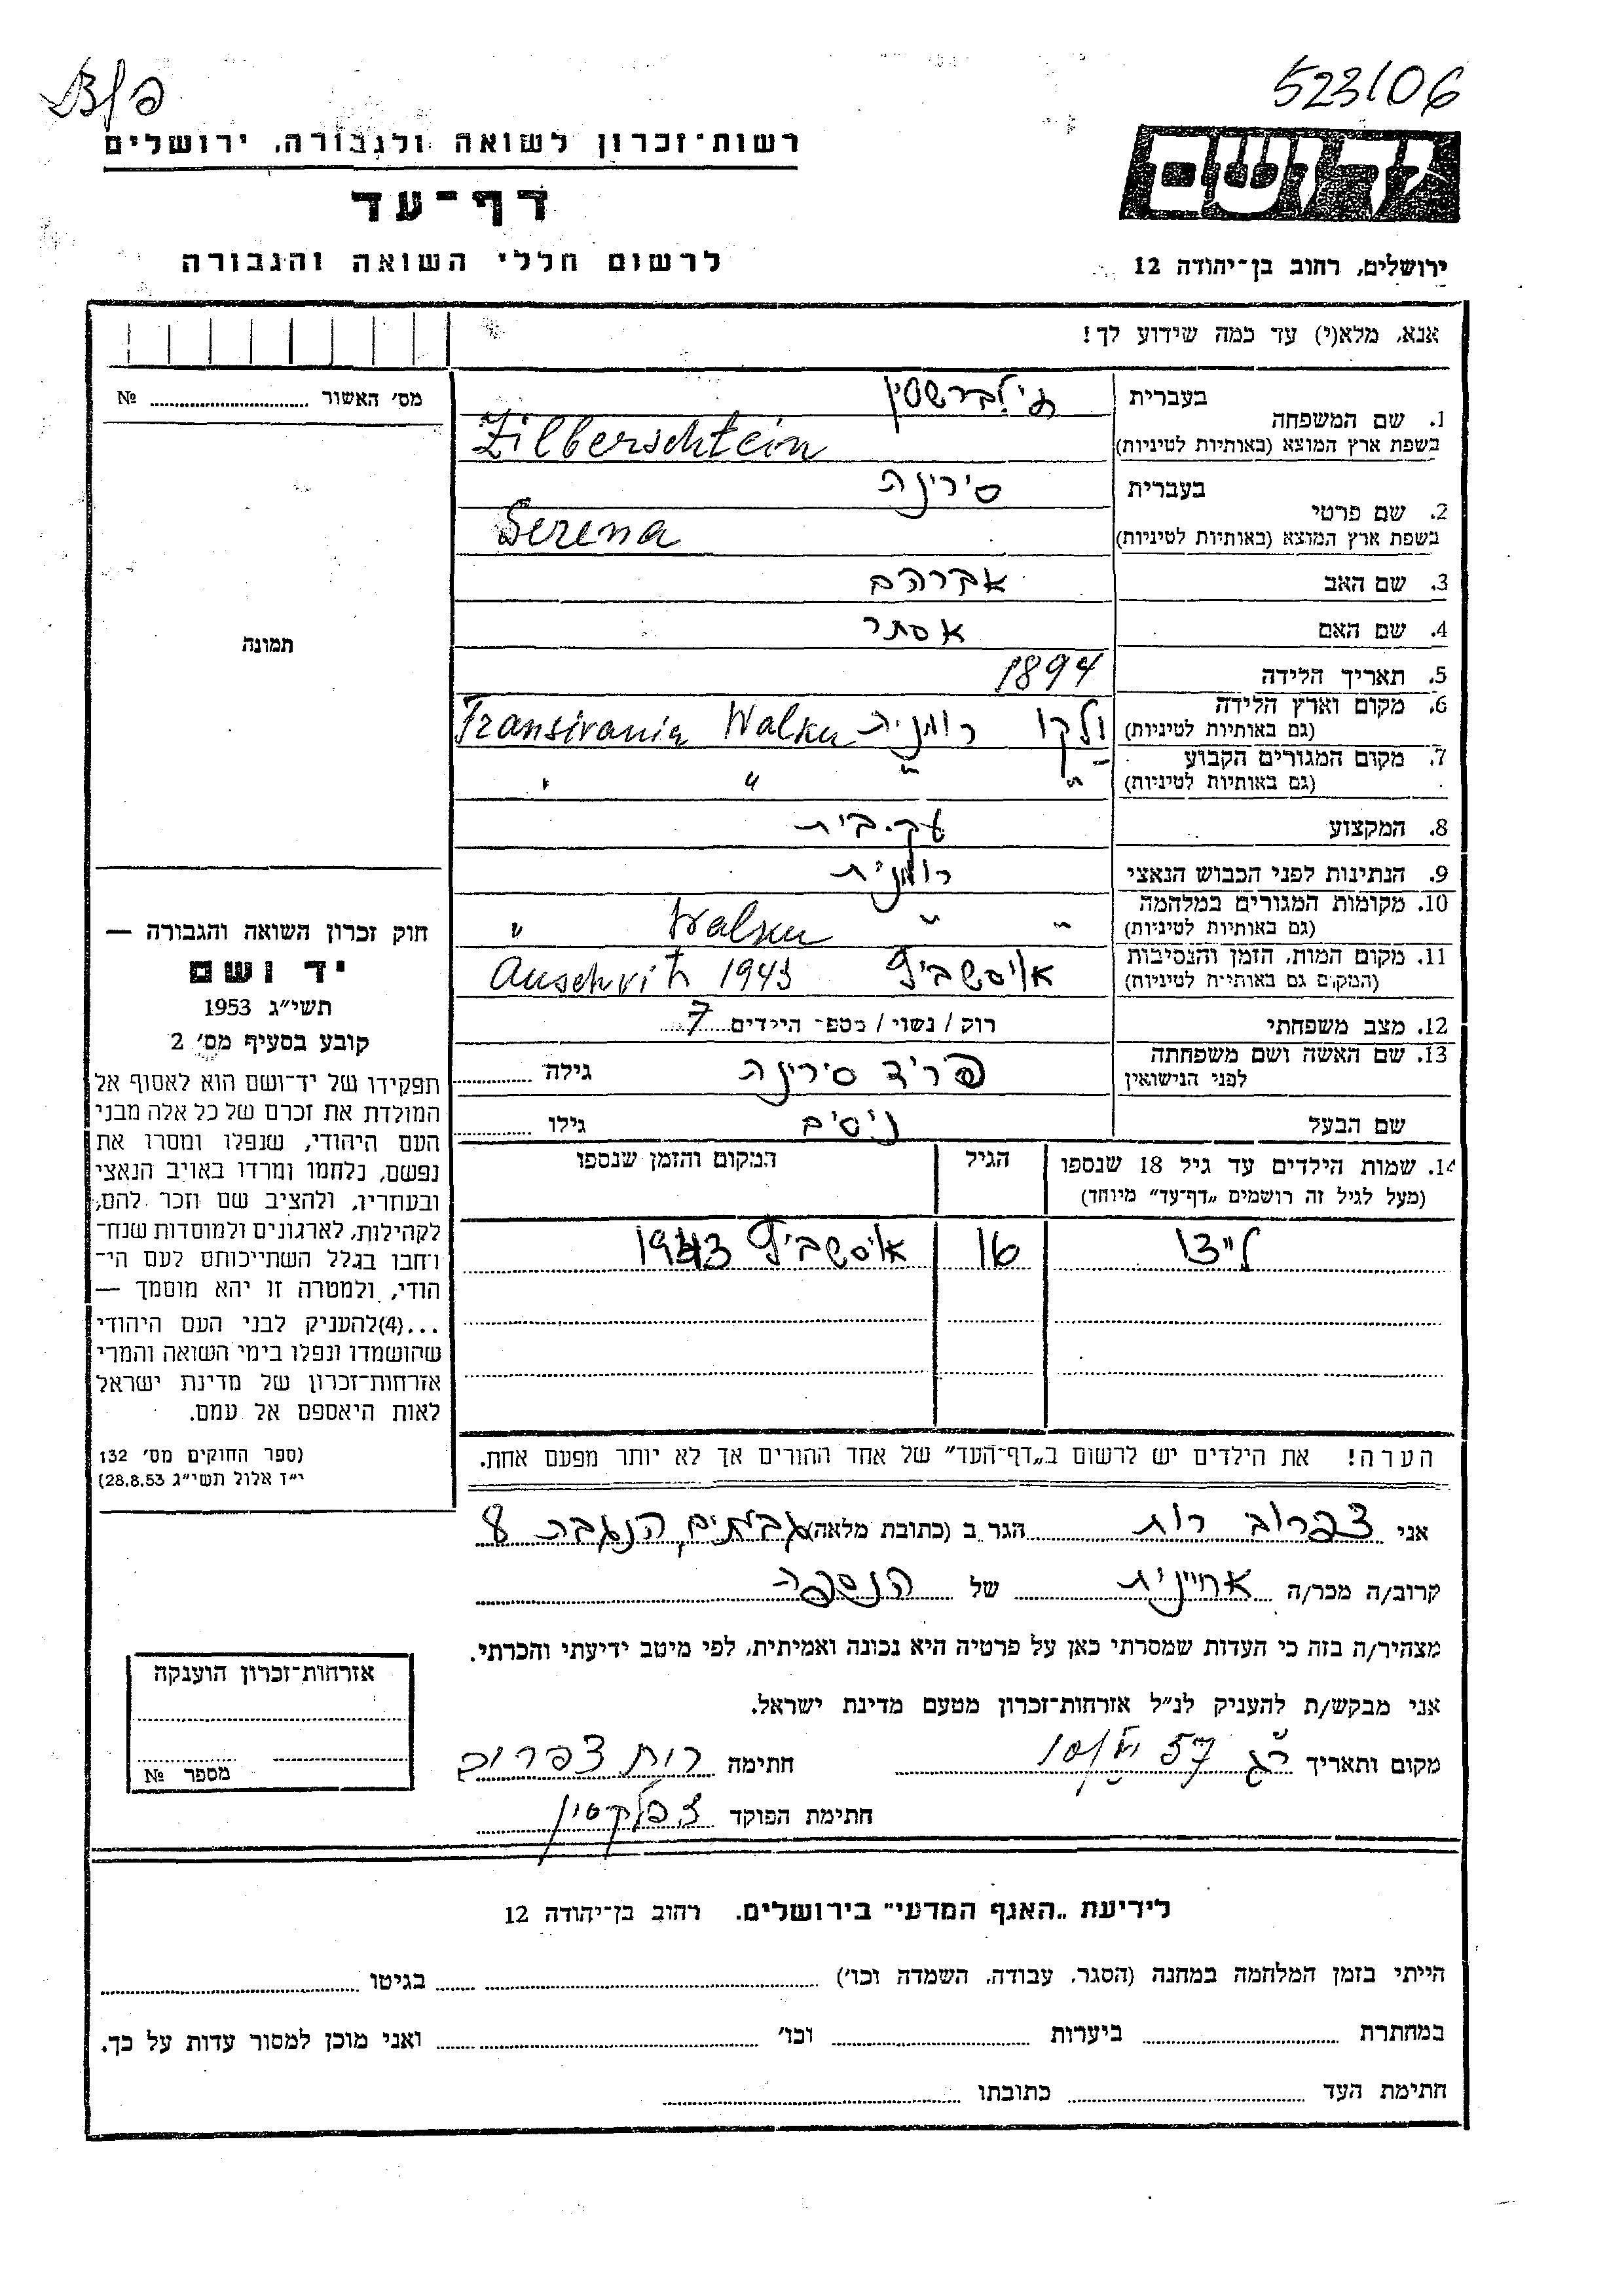 פ/B
523/06
יד ושם
רשות-זכרון לשואה ולגבורה, ירושלים
דף-עד
לרשום חללי השואה והגבורה
ירושלים, רחוב בן-יהודה 12
אנא, מלא(י) עד כמה שידוע לך!
מס' האשור № ........
תמונה
1. שם המשפחה
בעברית זילברשטין
בשפת ארץ המוצא (באותיות לטיניות) Zilberschtein
2. שם פרטי
בעברית סירינה
בשפת ארץ המוצא (באותיות לטיניות) Serena
3. שם האב אברהם
4. שם האם אסתר
5. תאריך הלידה 1894
6. מקום וארץ הלידה (גם באותיות לטיניות) ולקו רומניה Walku Transivania
7. מקום המגורים הקבוע (גם באותיות לטיניות) " " " "
8. המקצוע עק. בית
9. הנתינות לפני הכבוש הנאצי רומנית
10. מקומות המגורים במלחמה (גם באותיות לטיניות) " " Walku "
11. מקום המות, הזמן והנסיבות (המקום גם באותיות לטיניות) אוישביץ Auschvitz 1943
12. מצב משפחתי רוק / נשוי / מספ- הילדים 7
13. שם האשה ושם משפחתה לפני הנישואין פריד סירינה גילה ........
שם הבעל ניסים גילו ........
14. שמות הילדים עד גיל 18 שנספו (מעל לגיל זה רושמים „דף-עד" מיוחד)
הגיל
המקום והזמן שנספו
לייזו 16 אוישביץ 1943
הערה! את הילדים יש לרשום ב„דף-העד" של אחד ההורים אך לא יותר מפעם אחת.
חוק זכרון השואה והגבורה —
יד ושם
תשי"ג 1953
קובע בסעיף מס' 2
תפקידו של יד-ושם הוא לאסוף אל
המולדת את זכרם של כל אלה מבני
העם היהודי, שנפלו ומסרו את
נפשם, נלחמו ומרדו באויב הנאצי
ובעוזריו, ולהציב שם וזכר להם,
לקהילות, לארגונים ולמוסדות שנח-
רבו בגלל השתייכותם לעם הי-
הודי, ולמטרה זו יהא מוסמך —
...(4) להעניק לבני העם היהודי
שהושמדו ונפלו בימי השואה והמרי
אזרחות-זכרון של מדינת ישראל
לאות היאספם אל עמם.
(ספר החוקים מס' 132
י"ז אלול תשי"ג 28.8.53)
אני צפרוב רות הגר ב (כתובת מלאה) גבעתים 8
קרוב/ה מכר/ה אחיינית של הנספה
מצהיר/ה בזה כי העדות שמסרתי כאן על פרטיה היא נכונה ואמיתית, לפי מיטב ידיעתי והכרתי.
אני מבקש/ת להעניק לנ"ל אזרחות-זכרון מטעם מדינת ישראל.
מקום ותאריך ר"ג 57 חתימה רות צפרוב
חתימת הפוקד
אזרחות-זכרון הוענקה
מספר №
לידיעת „האגף המדעי" בירושלים. רחוב בן-יהודה 12
הייתי בזמן המלחמה במחנה (הסגר, עבודה, השמדה וכו') ........ בגיטו ........
במחתרת ........ ביערות ........ וכו' ........ ואני מוכן למסור עדות על כך.
חתימת העד ........ כתובתו ........